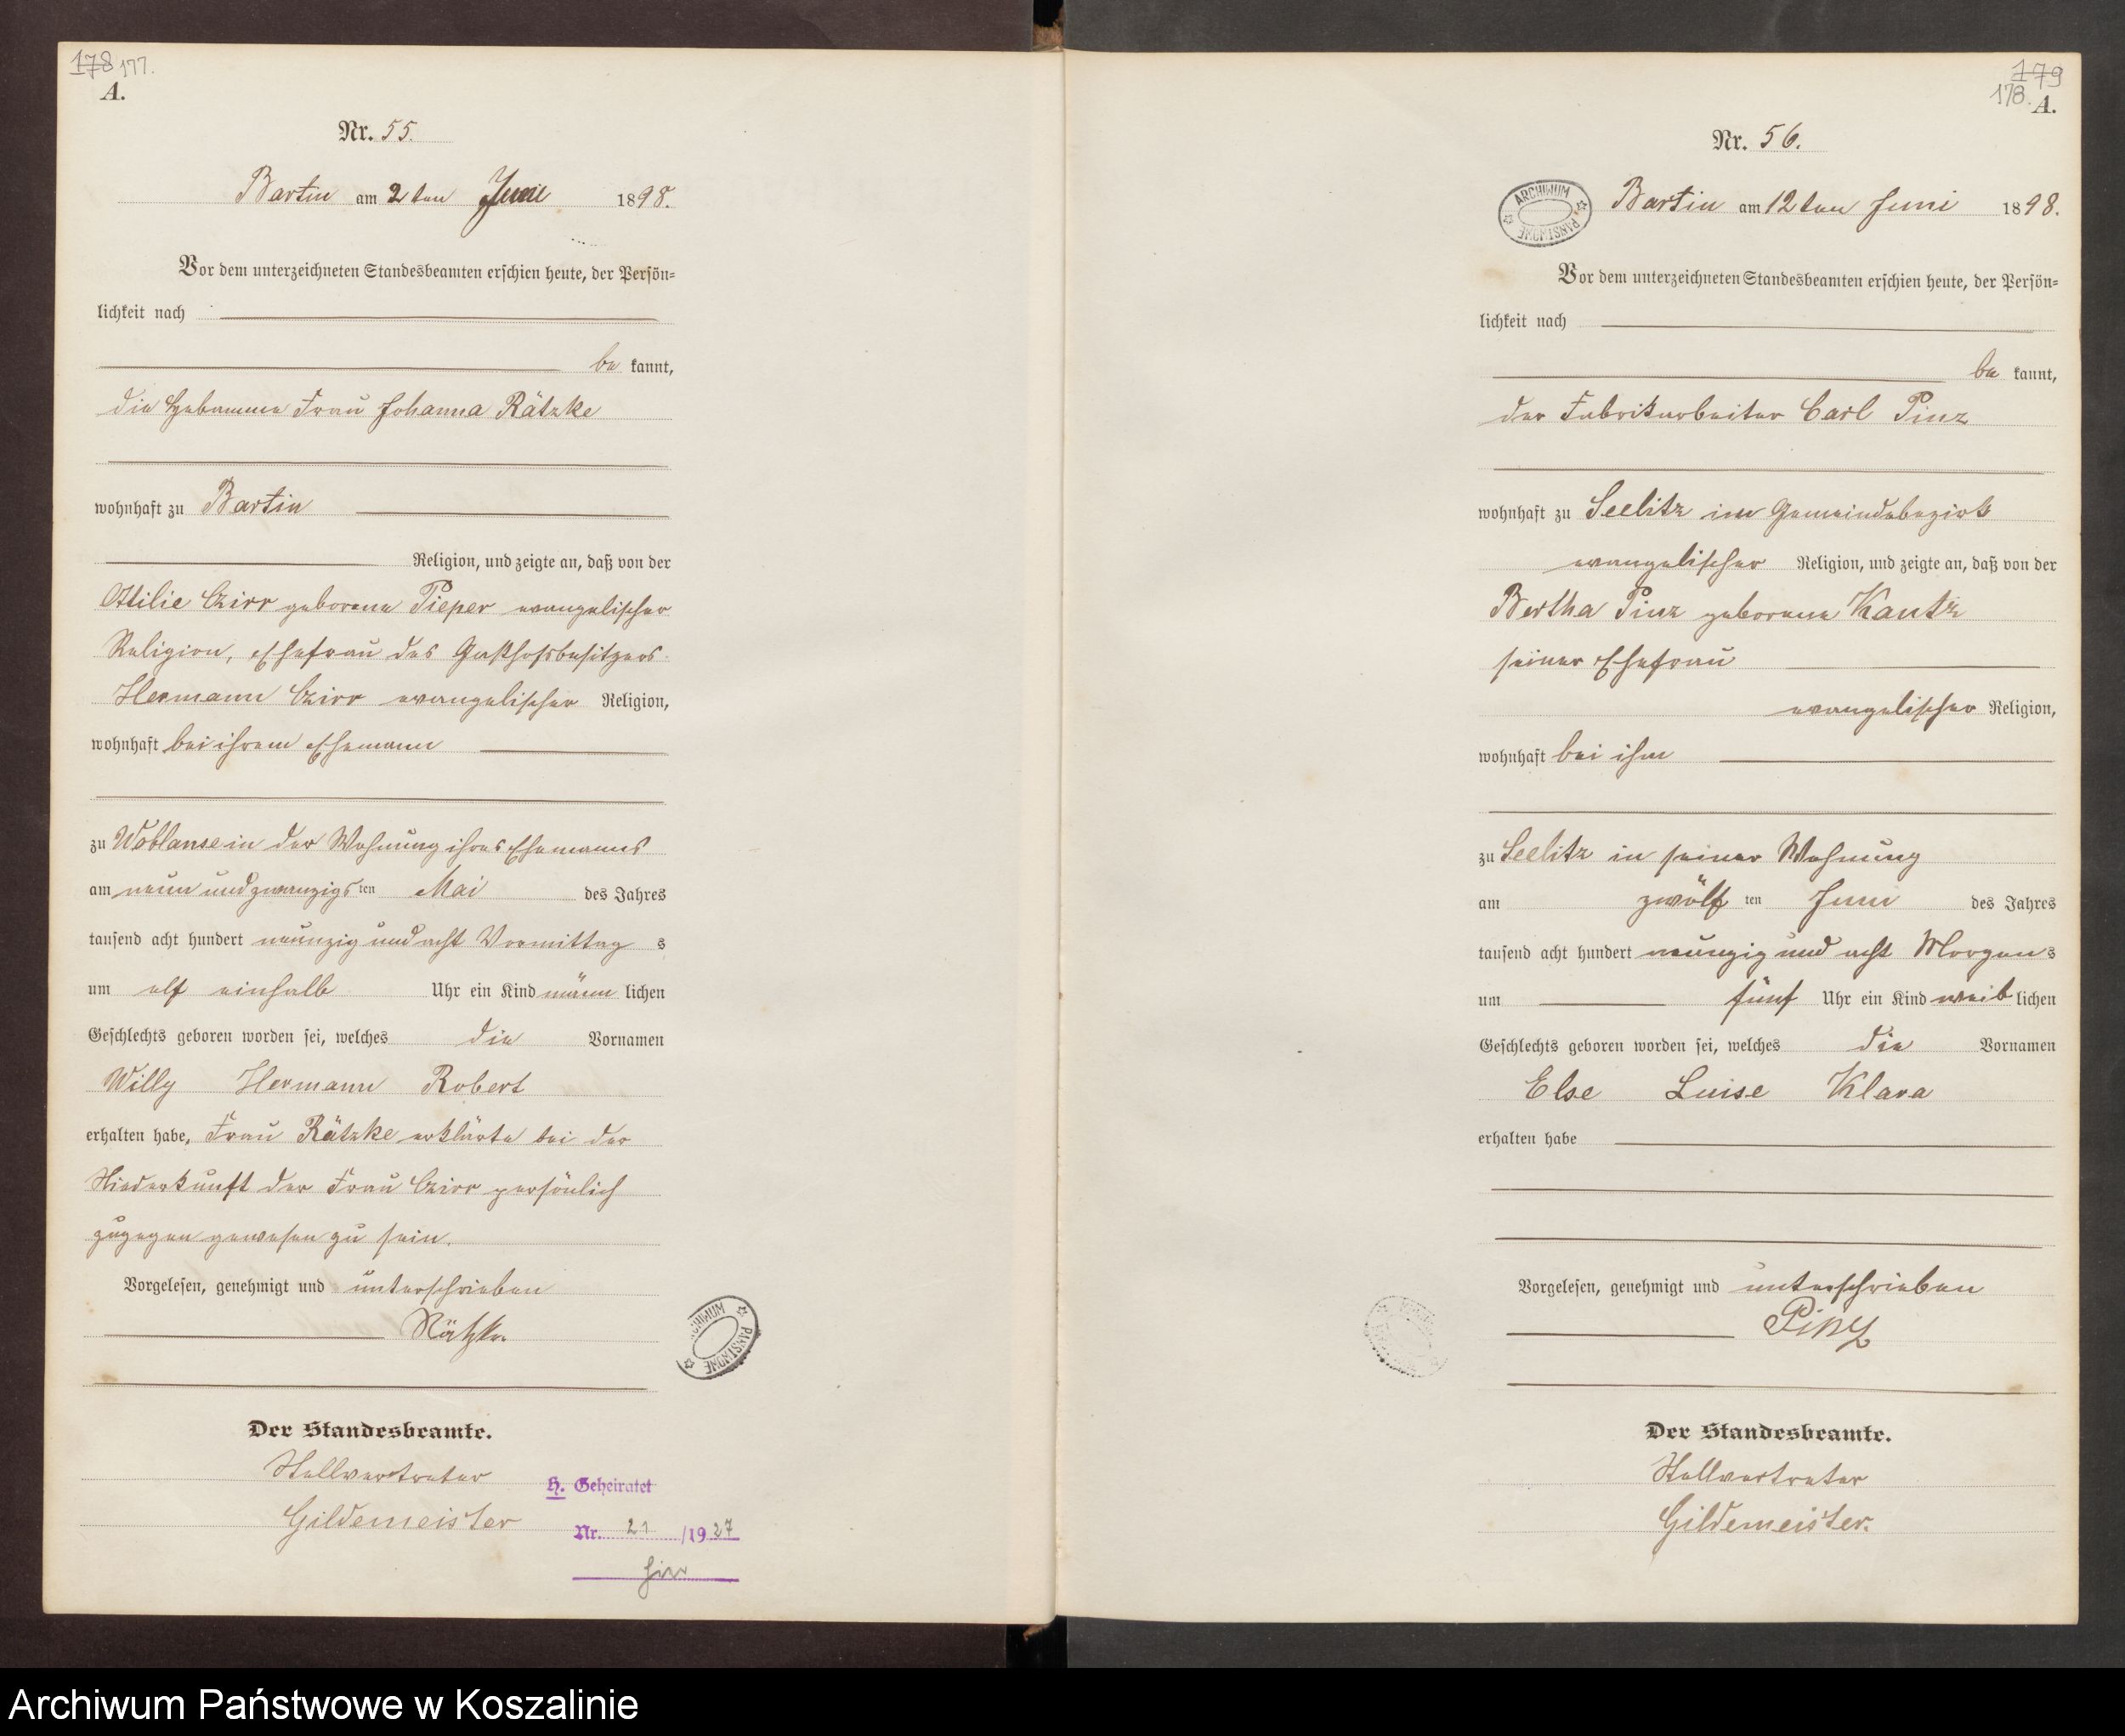 178 177.
A.
Nr. 55.
Bartin am 2ten Juni 1898.
Vor dem unterzeichneten Standesbeamten erschien heute, der Persön=
lichkeit nach
be kannt,
die Hebamme Frau Johanna Rätzke
wohnhaft zu Bartin
Religion, und zeigte an, daß von der
Ottilie Czirr geborene Pieper evangelischer
Religion, Ehefrau des Gasthofsbesitzers
Hermann Czirr evangelischer Religion,
wohnhaft bei ihrem Ehemann
zu Woblanse in der Wohnung ihres Ehemanns
am neun und zwanzigsten Mai des Jahres
tausend acht hundert neunzig und acht Vormittag s
um elf einhalb Uhr ein Kind männ lichen
Geschlechts geboren worden sei, welches die Vornamen
Willy Hermann Robert
erhalten habe, Frau Rätzke erklärte bei der
Niederkunft der Frau Czirr persönlich
zugegen gewesen zu sein.
Vorgelesen, genehmigt und unterschrieben
Rätzke
ARCHIWUM PAŃSTWOWE
Der Standesbeamte.
Stellvertreter
Gildemeister
H. Geheiratet
Nr. 21 /1927
hier
179
178. A.
Nr. 56.
ARCHIWUM PAŃSTWOWE
Bartin am 12ten Juni 1898.
Vor dem unterzeichneten Standesbeamten erschien heute, der Persön=
lichkeit nach
be kannt,
der Fabrikarbeiter Carl Pinz
wohnhaft zu Seelitz im Gemeindebezirk
evangelischer Religion, und zeigte an, daß von der
Bertha Pinz geborene Kautz
seiner Ehefrau
evangelischer Religion,
wohnhaft bei ihm
zu Seelitz in seiner Wohnung
am zwölf ten Juni des Jahres
tausend acht hundert neunzig und acht Morgens
um fünf Uhr ein Kind weib lichen
Geschlechts geboren worden sei, welches die Vornamen
Else Luise Klara
erhalten habe
Vorgelesen, genehmigt und unterschrieben
Pinz
Der Standesbeamte.
Stellvertreter
Gildemeister.
Archiwum Państwowe w Koszalinie